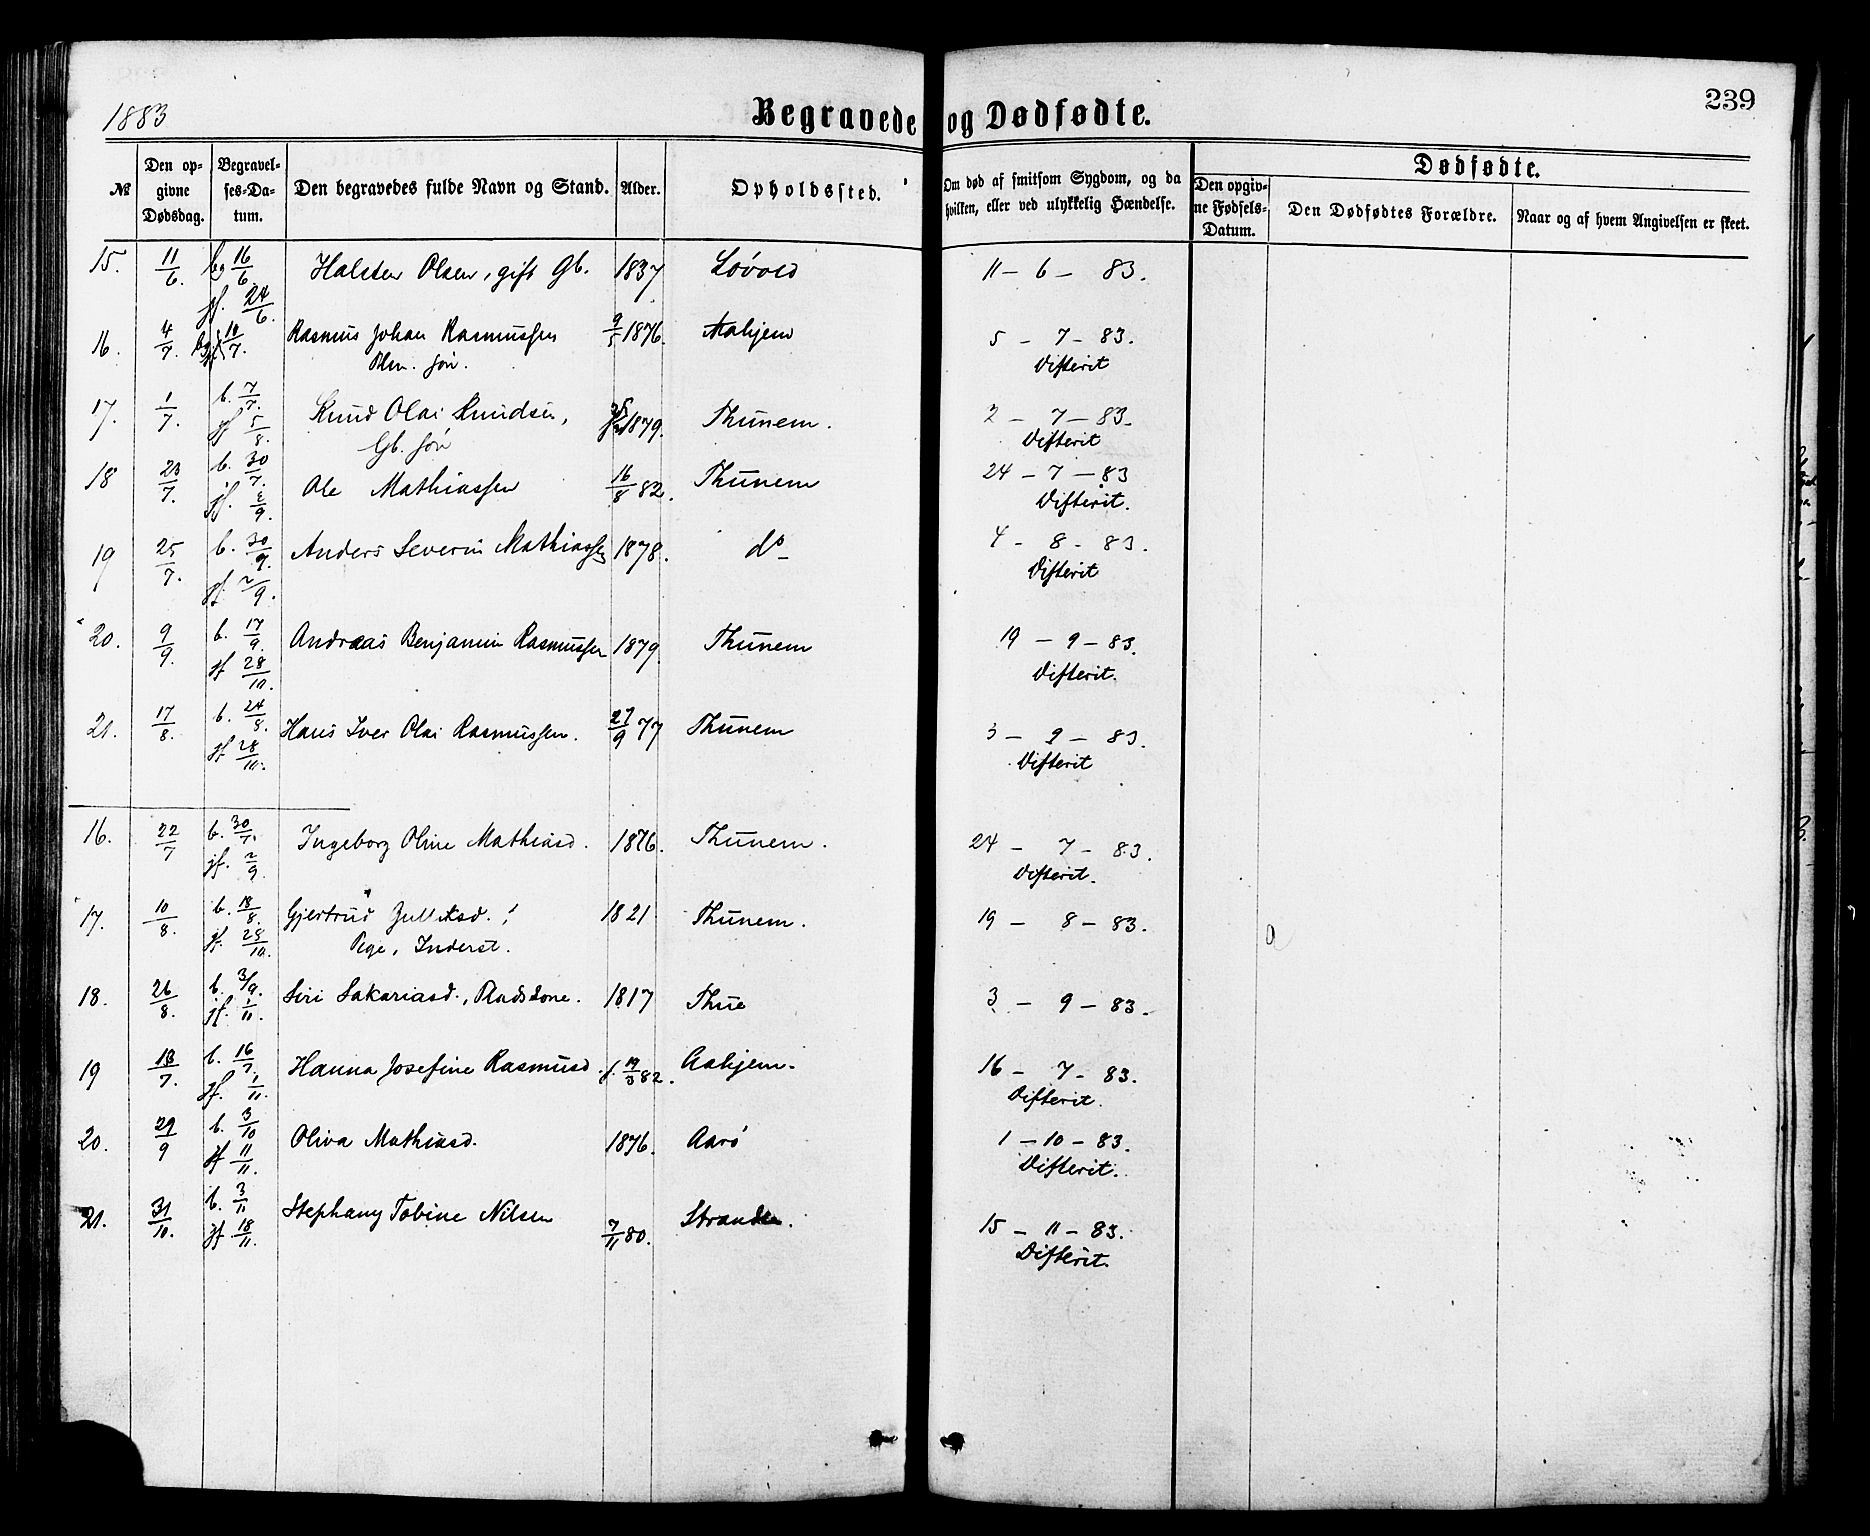 1883
Begravede og Dødfødte.
239
№
Den opgivne Dødsdag.
Begravelses-Datum.
Den begravedes fulde Navn og Stand.
Alder.
Opholdssted.
Om død af smitsom Sygdom, og da hvilken, eller ved ulykkelig Hændelse.
Dødfødte.
Den opgivne Fødsels-Datum.
Den Dødfødtes Forældre.
Naar og af hvem Angivelsen er skeet.
15. 11/6. bg 16/6. Halsten Olsen, gift Gb. 1837 Lovold 11 - 6 - 83.
jf. 24/6.
16. 4/7. 10/7. Rasmus Johan Rasmussen 1876. Aahjem 5 - 7 - 83.
Plm. søn. Difterit
17. 1/7. b. 7/7. Knud Olai Knudsen, 1879. Thunem. 2 - 7 - 83.
jf 5/8. Gb. søn Difterit
18 23/7. b. 30/7. Ole Mathiassen 16/8 82. Thunem 24 - 7 - 83
jf. 2/9. Difterit.
19 25/7. b. 30/7. Anders Severin Mathiassen 1878. do 4 - 8 - 83.
jf. 2/9. Difterit
20. 9/9. b. 17/9. Andreas Benjamin Rasmussen 1879 Thunem 19 - 9 - 83.
jf 28/10. Difterit.
21. 17/8. b. 24/8. Hans Iver Olai Rasmussen. 27/9 77 Thunem 3 - 9 - 83.
jf 28/10. Difterit
16. 22/7 b. 30/7. Ingeborg Oline Mathiasd. 1876. Thunem. 24 - 7 - 83.
jf. 2/9. Difterit.
17. 10/8. b. 18/8. Gjertrud 1821 Thunem. 19 - 8 - 83.
jf. 28/10. Pige, Inderst.
18. 26/8. b. 3/9. Siri Sakariasd., 1817 Thue 3 - 9 - 83.
jf. 1/11.
19 13/7. b. 16/7. Hanna Josefine Rasmusd. f. 19/3 82. Aahjem. 16 - 7 - 83.
jf. 1/11. Difterit.
20. 29/9 b. 3/10 Oliva Mathiasd. 1876. Aarö 1 - 10 - 83.
jf 11/11. Difterit.
21. 31/10. b. 3/11 Stephany Tobine Nilsen 7/11 80. Stranden. 15 - 11 - 83.
jf 18/11. Difterit.